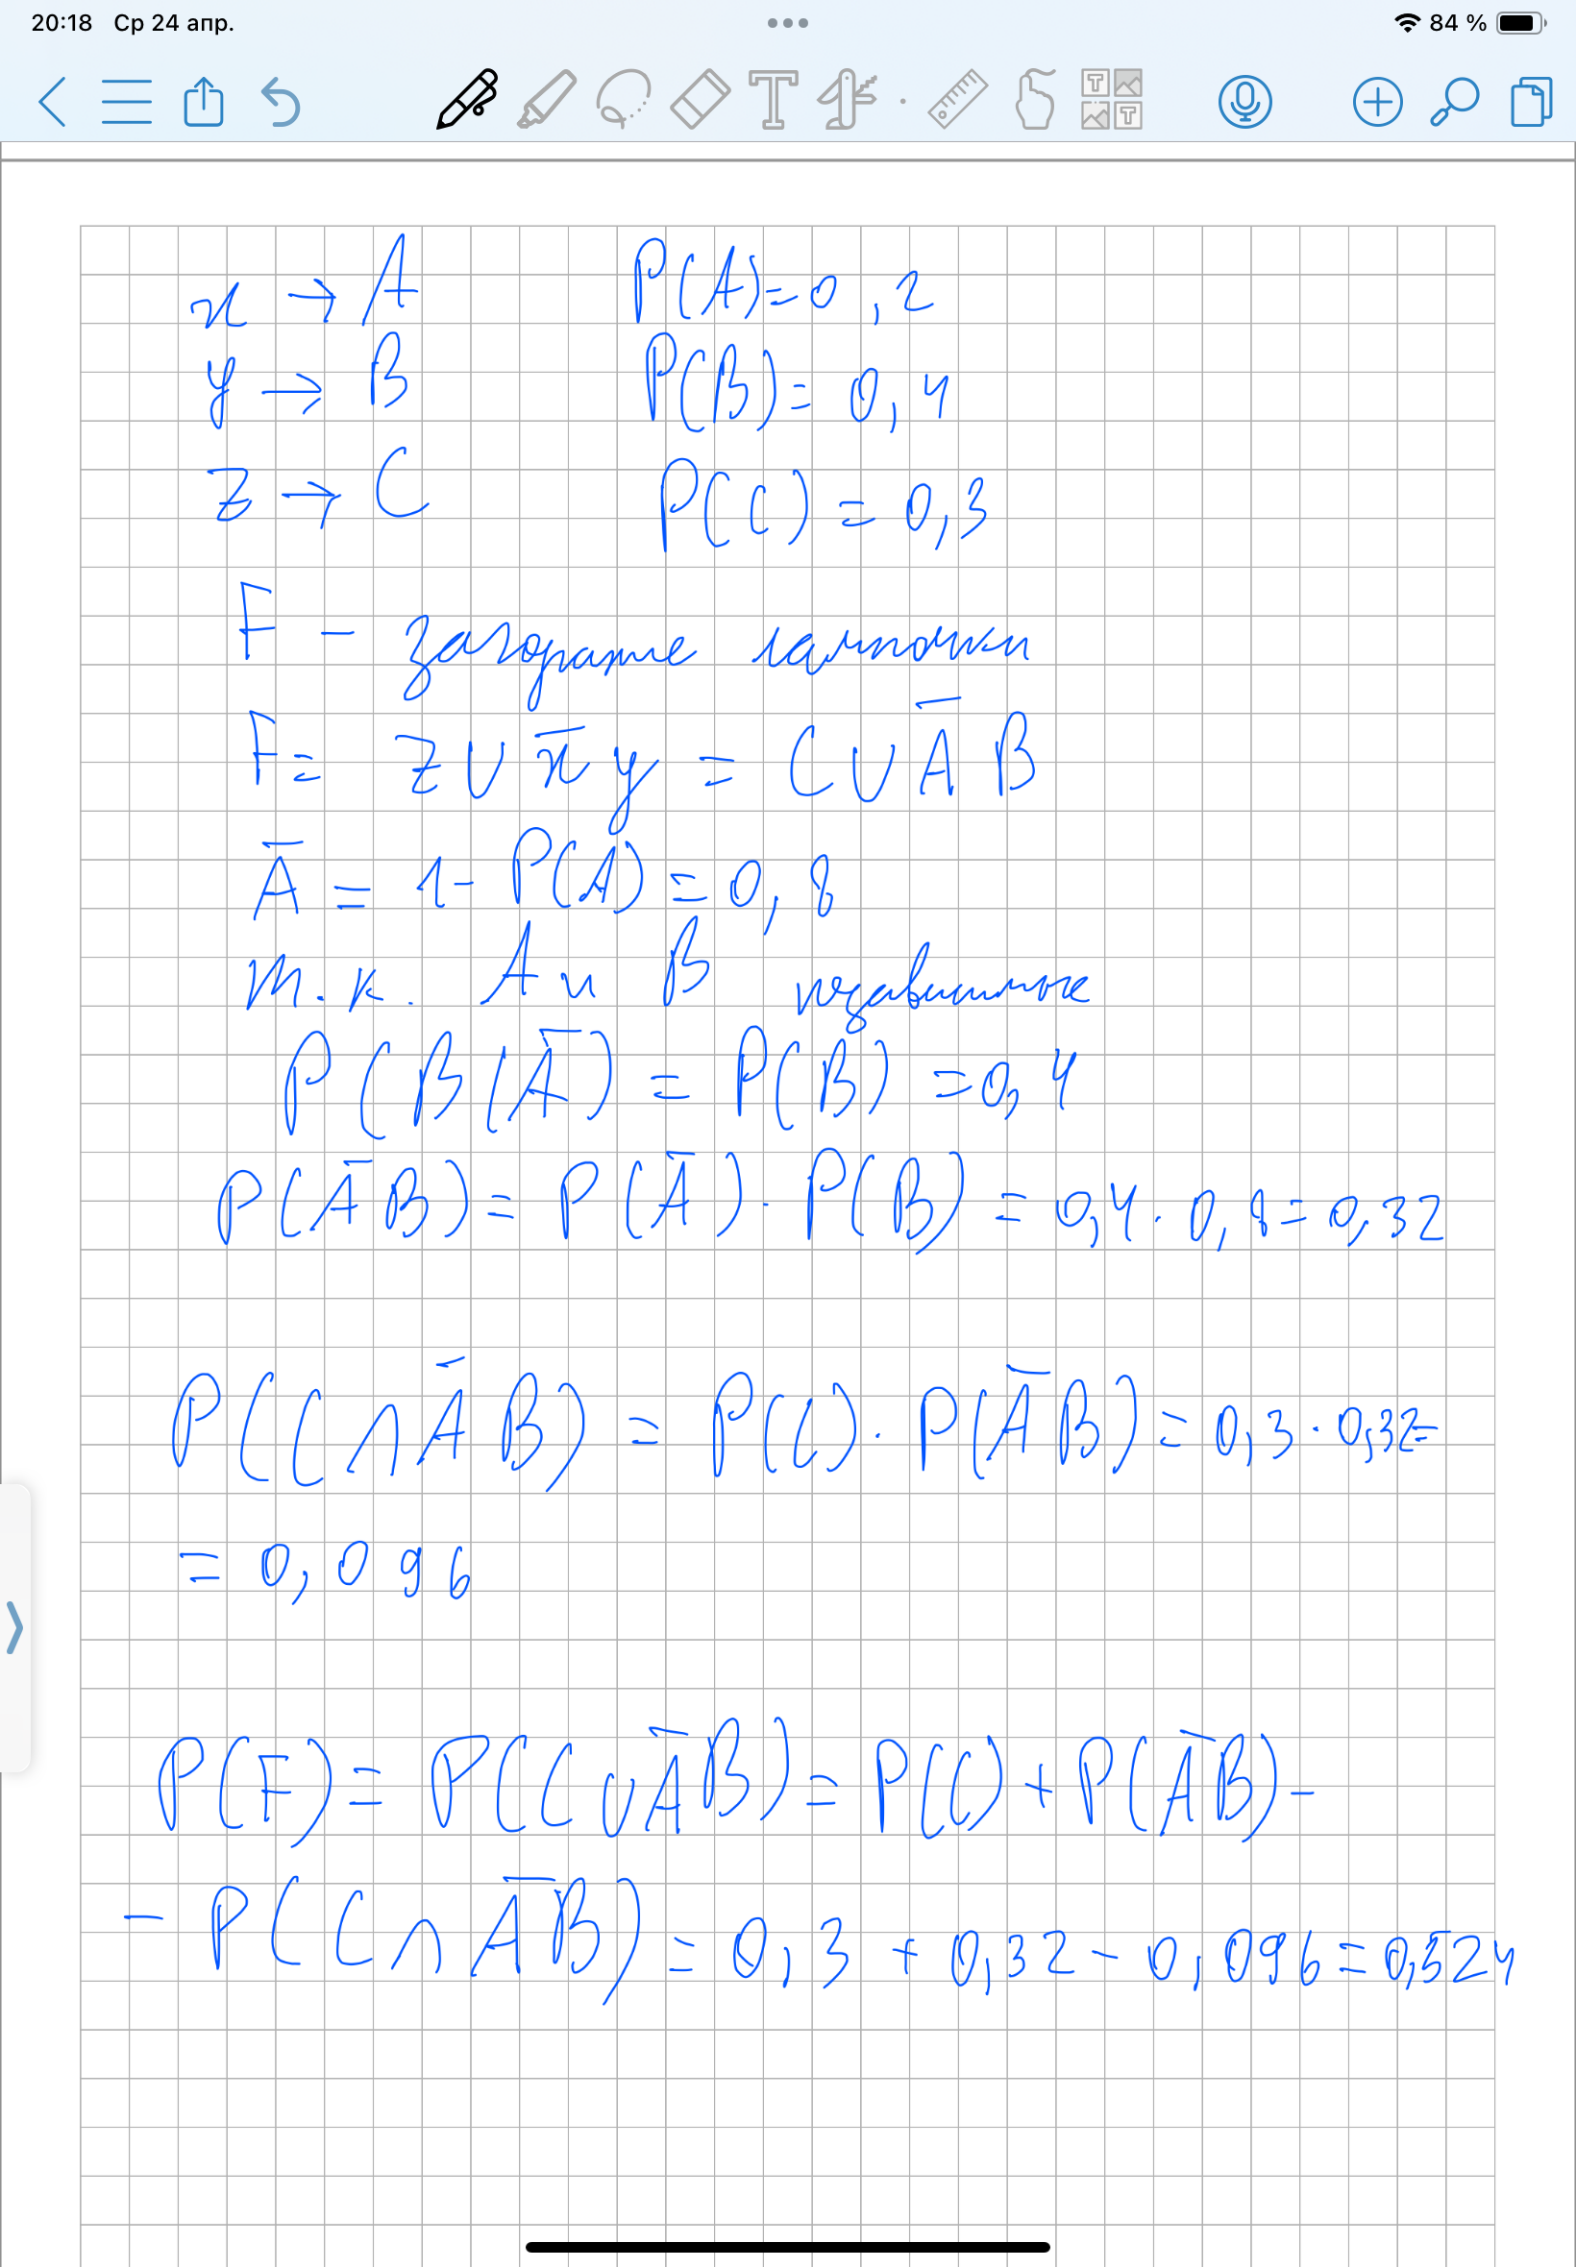 20:18 Ср 24 апр. 84 %
x → A P(A)=0,2
y → B P(B)=0,4
z → C P(C)=0,3
F – загорание лампочки
F= z ∪ x̄ y = C ∪ Ā B
Ā = 1- P(A) = 0,8
т.к. A и B независимые
P(B|Ā) = P(B) = 0,4
P(ĀB) = P(Ā) · P(B) = 0,4 · 0,8 = 0,32
P(C∩ĀB) = P(C) · P(ĀB) = 0,3 · 0,32=
= 0,096
P(F) = P(C∪ĀB) = P(C) + P(ĀB) –
– P(C∩ĀB) = 0,3 + 0,32 – 0,096 = 0,524